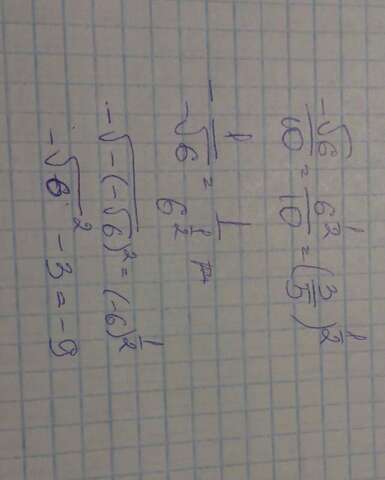 -√6/10 = 6^(1/2)/10 = (3/5)^(1/2)
- 1/-√6 = 1/6^(1/2)
-√(-(-√6)² = (-6)^(1/2)
-√6² - 3 = -9